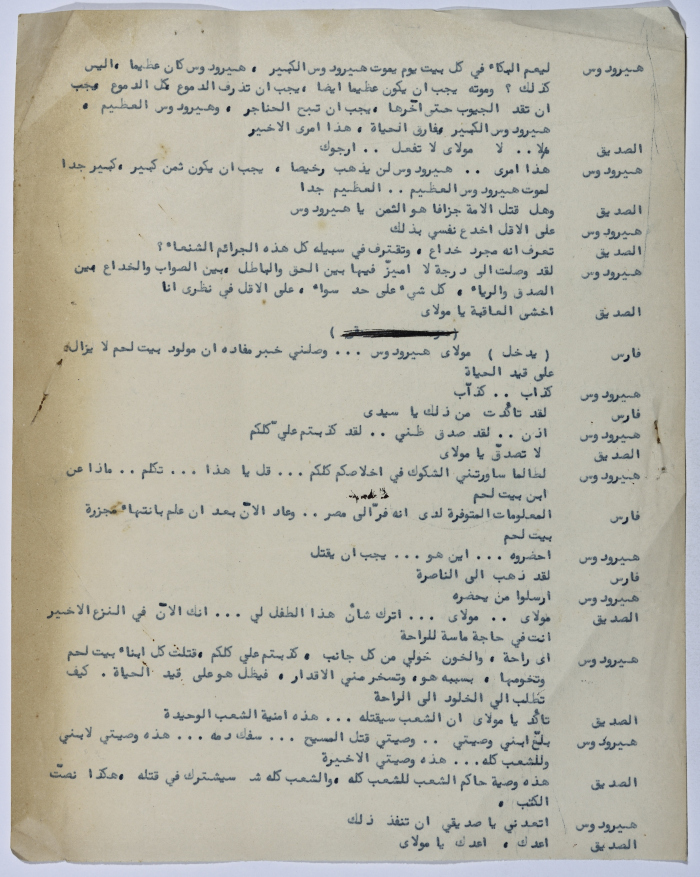 هيرودوس ليعم البكاء في كل بيت يوم يموت هيرودوس الكبير ، هيرودوس كان عظيما ،اليس
كذلك ؟ وموته يجب ان يكون عظيما ايضا ،يجب ان تذرف الدموع ،كل الدموع ،يجب
ان تقد الجيوب حتى آخرها ،يجب ان تبح الحناجر ، وهيرودوس العظيم ،
هيرودوس الكبير ،فارق الحياة ، هذا امرى الاخير
الصديق لا .. لا مولاى لا تفعل .. ارجوك
هيرودوس هذا امرى .. هيرودوس لن يذهب رخيصا ، يجب ان يكون ثمن كبير ،كبير جدا
لموت هيرودوس العظيم .. العظيم جدا
الصديق وهل قتل الامة جزافا هو الثمن يا هيرودوس
هيرودوس على الاقل اخدع نفسي بذلك
الصديق تعرف انه مجرد خداع ، وتقترف في سبيله كل هذه الجرائم الشنعاء ؟
هيرودوس لقد وصلت الى درجة لا اميزّ فيها بين الحق والباطل ،بين الصواب والخداع ،بين
الصدق والرياء ، كل شيء على حد سواء ، على الاقل في نظرى انا
الصديق اخشى العاقبة يا مولاى
فارس ( يدخل ) مولاى هيرودوس ... وصلني خبر مفاده ان مولود بيت لحم لا يزال
على قيد الحياة
هيرودوس كذاب .. كذّاب
فارس لقد تأكدت من ذلك يا سيدى
هيرودوس اذن .. لقد صدق ظني .. لقد كذبتم عليّ كلكم
الصديق لا تصدقّ يا مولاى
هيرودوس لطالما ساورتني الشكوك في اخلاصكم كلكم ... قل يا هذا ... تكلم .. ماذا عن
ابن بيت لحم
فارس المعلومات المتوفرة لدى انه فرّ الى مصر .. وعاد الآن بعد ان علم بانتهاء مجزرة
بيت لحم
هيرودوس احضروه ... اين هو ... يجب ان يقتل
فارس لقد ذهب الى الناصرة
هيرودوس ارسلوا من يحضره
الصديق مولاى .. مولاى ... اترك شأن هذا الطفل لي ... انك الآن في النزع الاخير
انت في حاجة ماسة للراحة
هيرودوس اى راحة ، والخون حولي من كل جانب ، كذبتم علي كلكم ،قتلت كل ابناء بيت لحم
وتخومها ، بسببه هو، وتسخر مني الاقدار ، فيظل هو على قيد الحياة . كيف
تطلب الي الخلود الى الراحة
الصديق تأكد يا مولاى ان الشعب سيقتله ... هذه امنية الشعب الوحيدة
هيرودوس بلغّ ابني وصيتي .. وصيتي قتل المسيح ... سفك دمه ... هذه وصيتي لابني
وللشعب كله ... هذه وصيتي الاخيرة
الصديق هذه وصية حاكم الشعب للشعب كله ،والشعب كله سيشترك في قتله ،هكذا نصتّ
الكتب ،
هيرودوس اتعدني يا صديقي ان تنفذ ذلك
الصديق اعدك ، اعدك يا مولاى